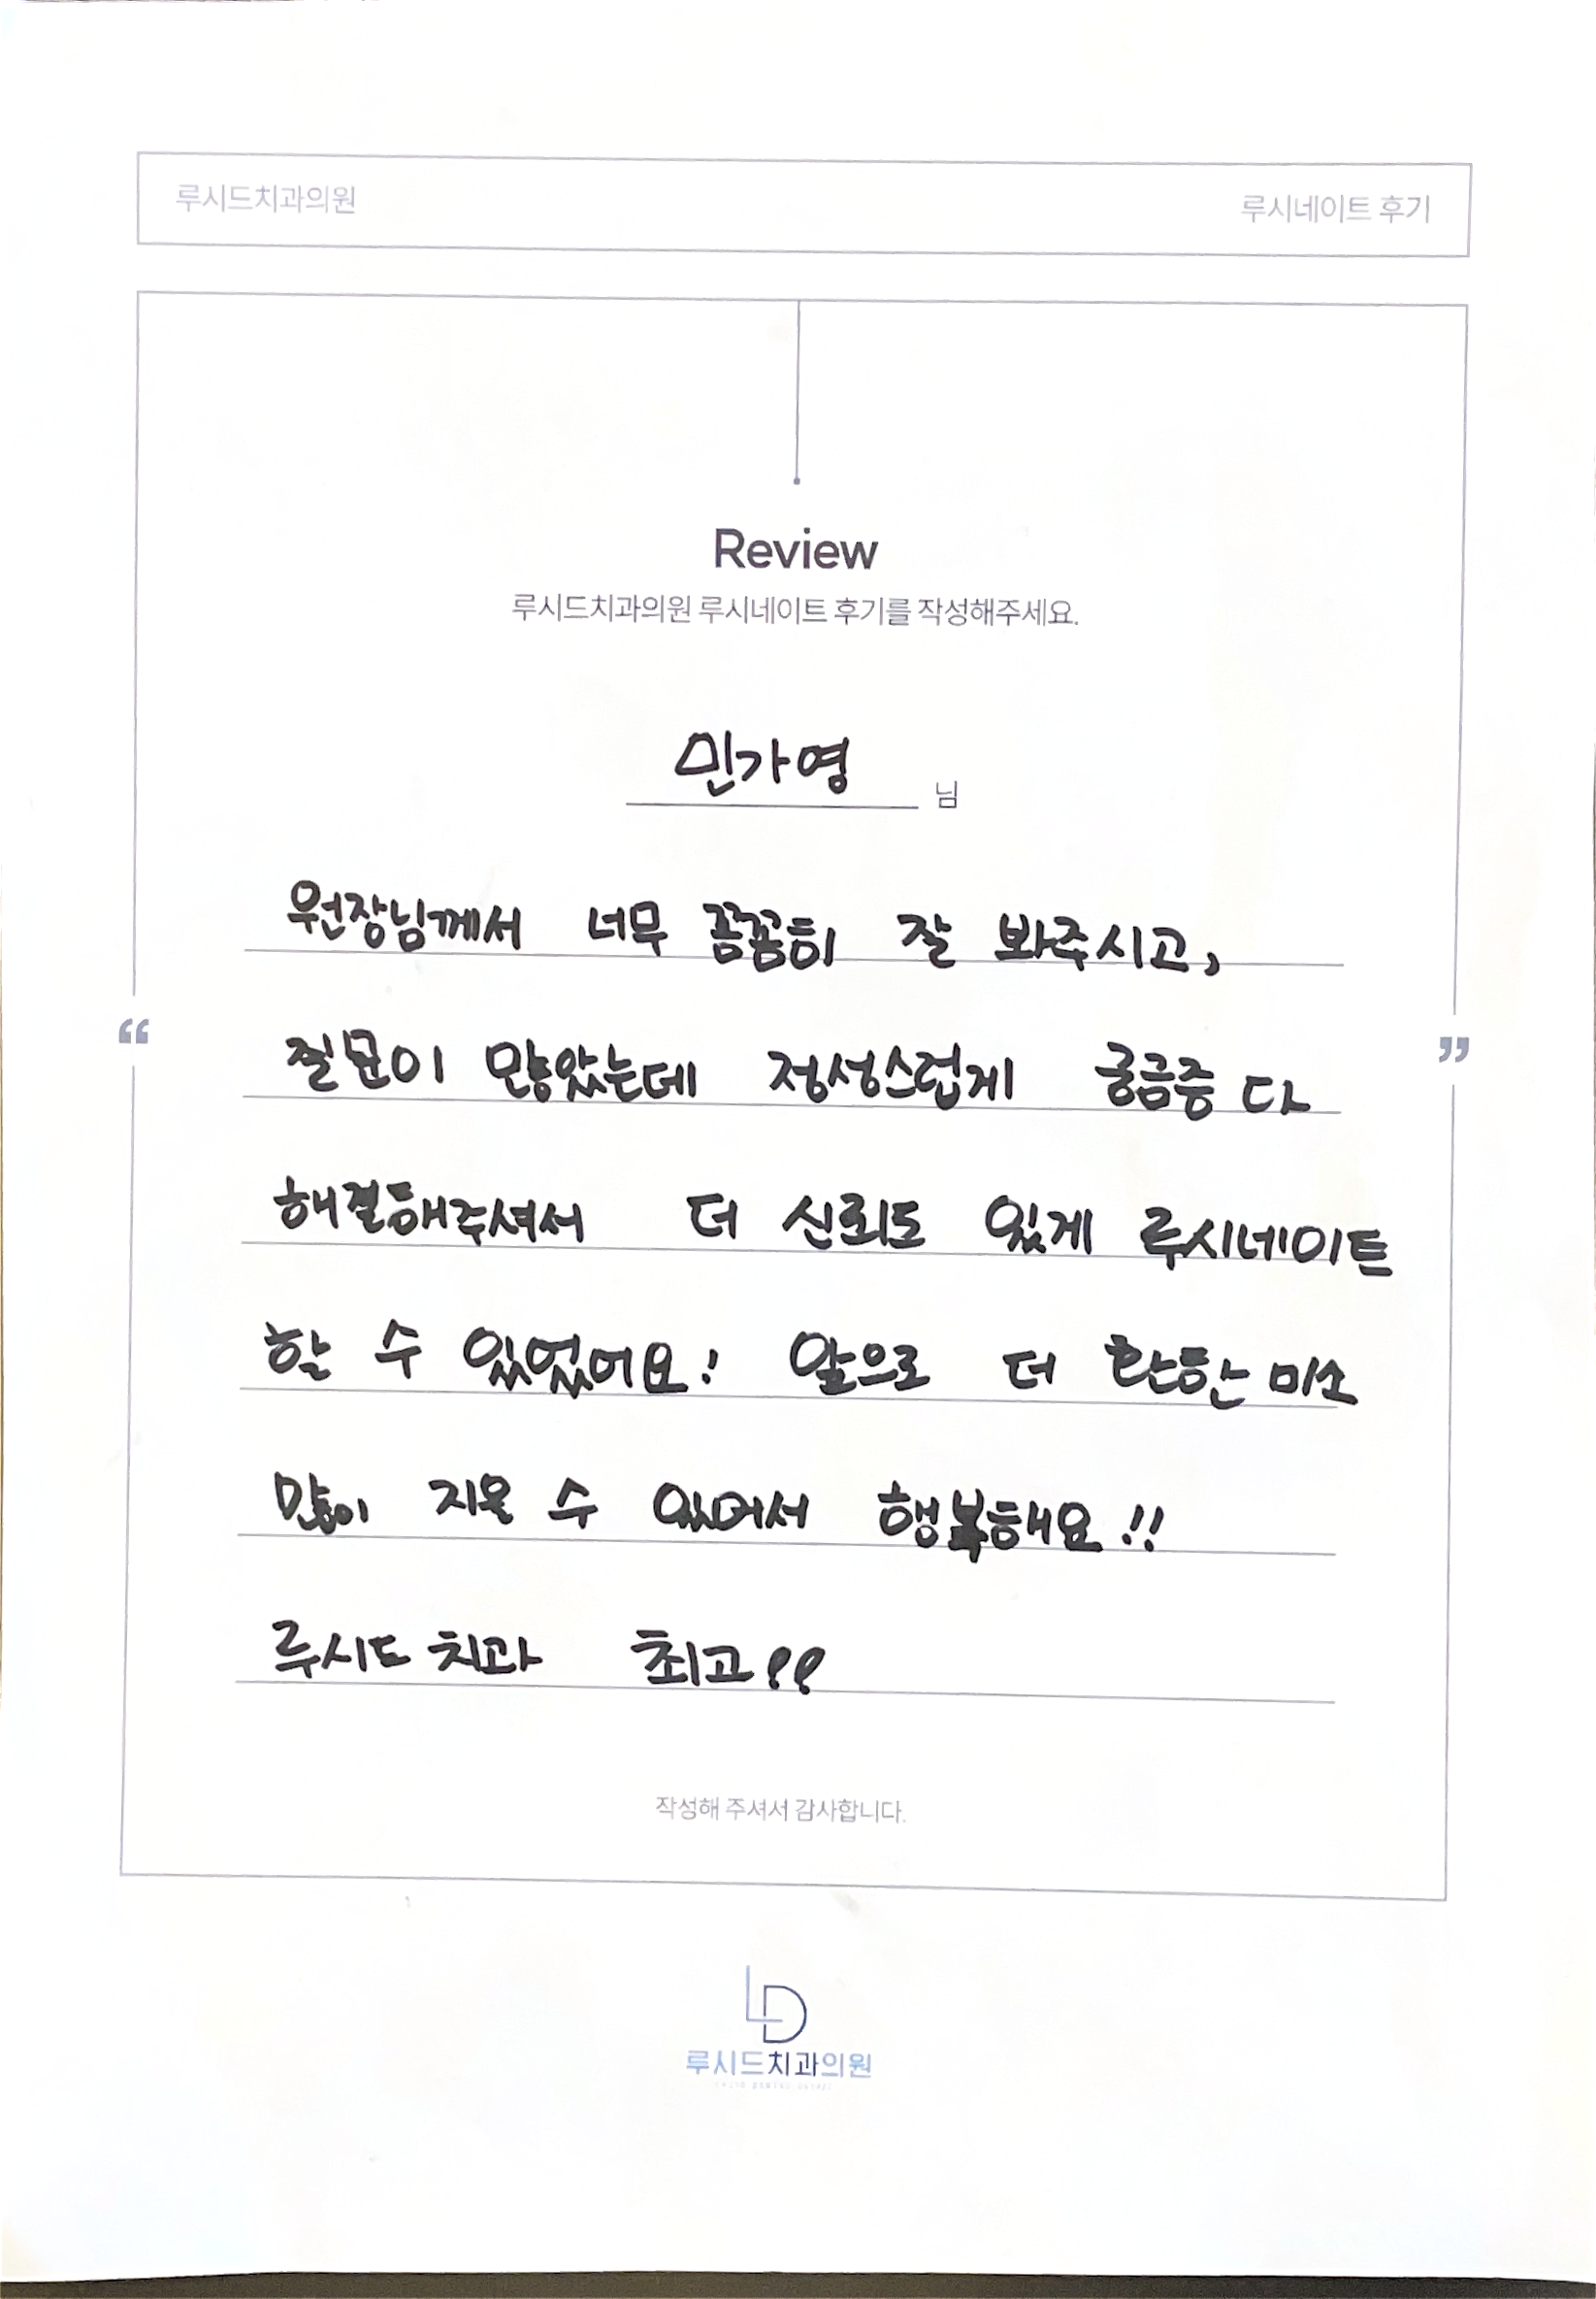 루시드치과의원
루시네이트 후기
Review
루시드치과의원 루시네이트 후기를 작성해주세요.
민가영 님
원장님께서 너무 꼼꼼히 잘 봐주시고,
질문이 많았는데 정성스럽게 궁금증 다
해결해주셔서 더 신뢰도 있게 루시네이트
할 수 있었어요! 앞으로 더 환한 미소
많이 지을 수 있어서 행복해요!!
루시드 치과 최고!!
작성해 주셔서 감사합니다.
LD
루시드치과의원